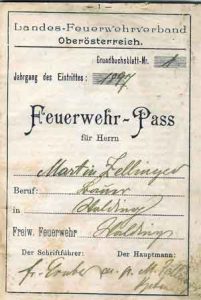 — 1 —
Landes-Feuerwehrverband
Oberösterreich.
Grundbuchsblatt-Nr. 1
Jahrgang des Eintrittes: 1897
Feuerwehr-Pass
für Herrn
Martin Zellinger
Beruf: Bauer
in Halding
Freiw. Feuerwehr Halding
Der Schriftführer: Der Hauptmann: